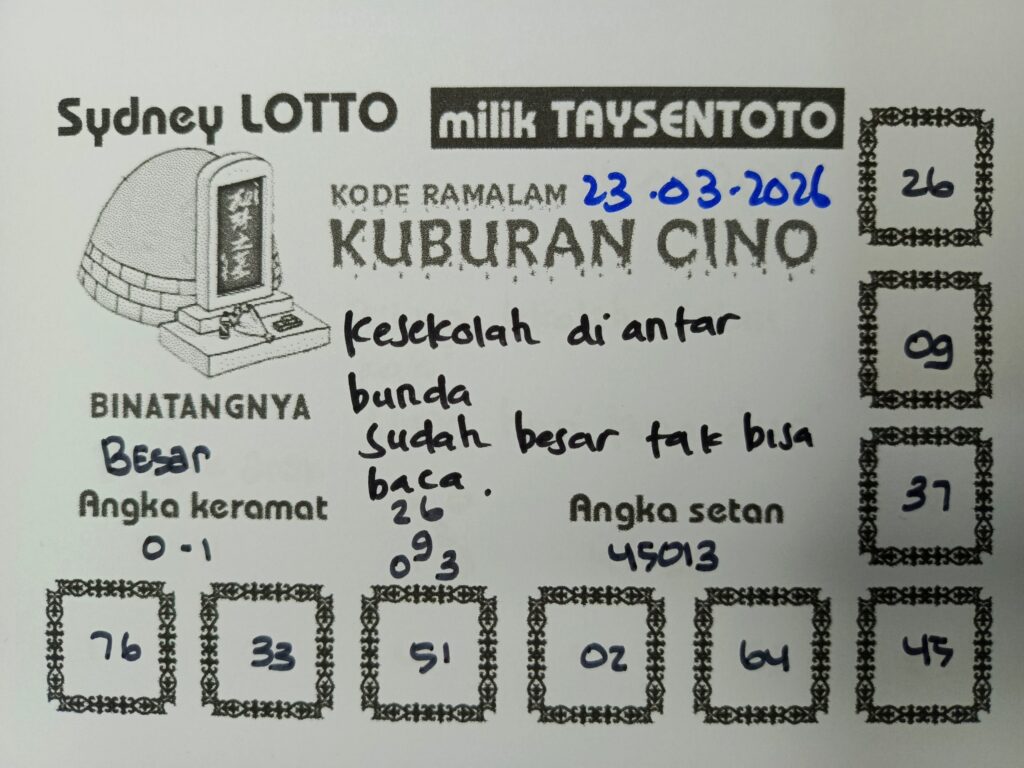 Sydney LOTTO milik TAYSENTOTO
KODE RAMALAM 23.03.2026
KUBURAN CINO
Kesekolah di antar
bunda
sudah besar tak bisa
baca.
BINATANGNYA
Besar
Angka keramat
0-1
26
9
03
Angka setan
45013
26
09
37
76 33 51 02 64 45